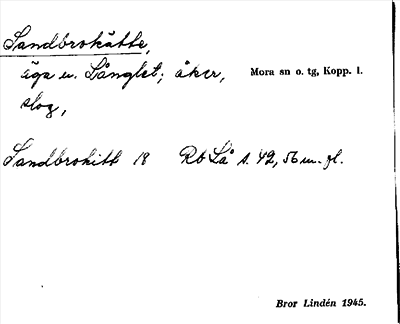 Sandbrokätte,
äga u. Långlet; åker, Mora sn o. tg, Kopp. l.
slog,
Sandbrokitt 18 Rb Lå s. 42, 56 m. fl.
Bror Lindén 1945.